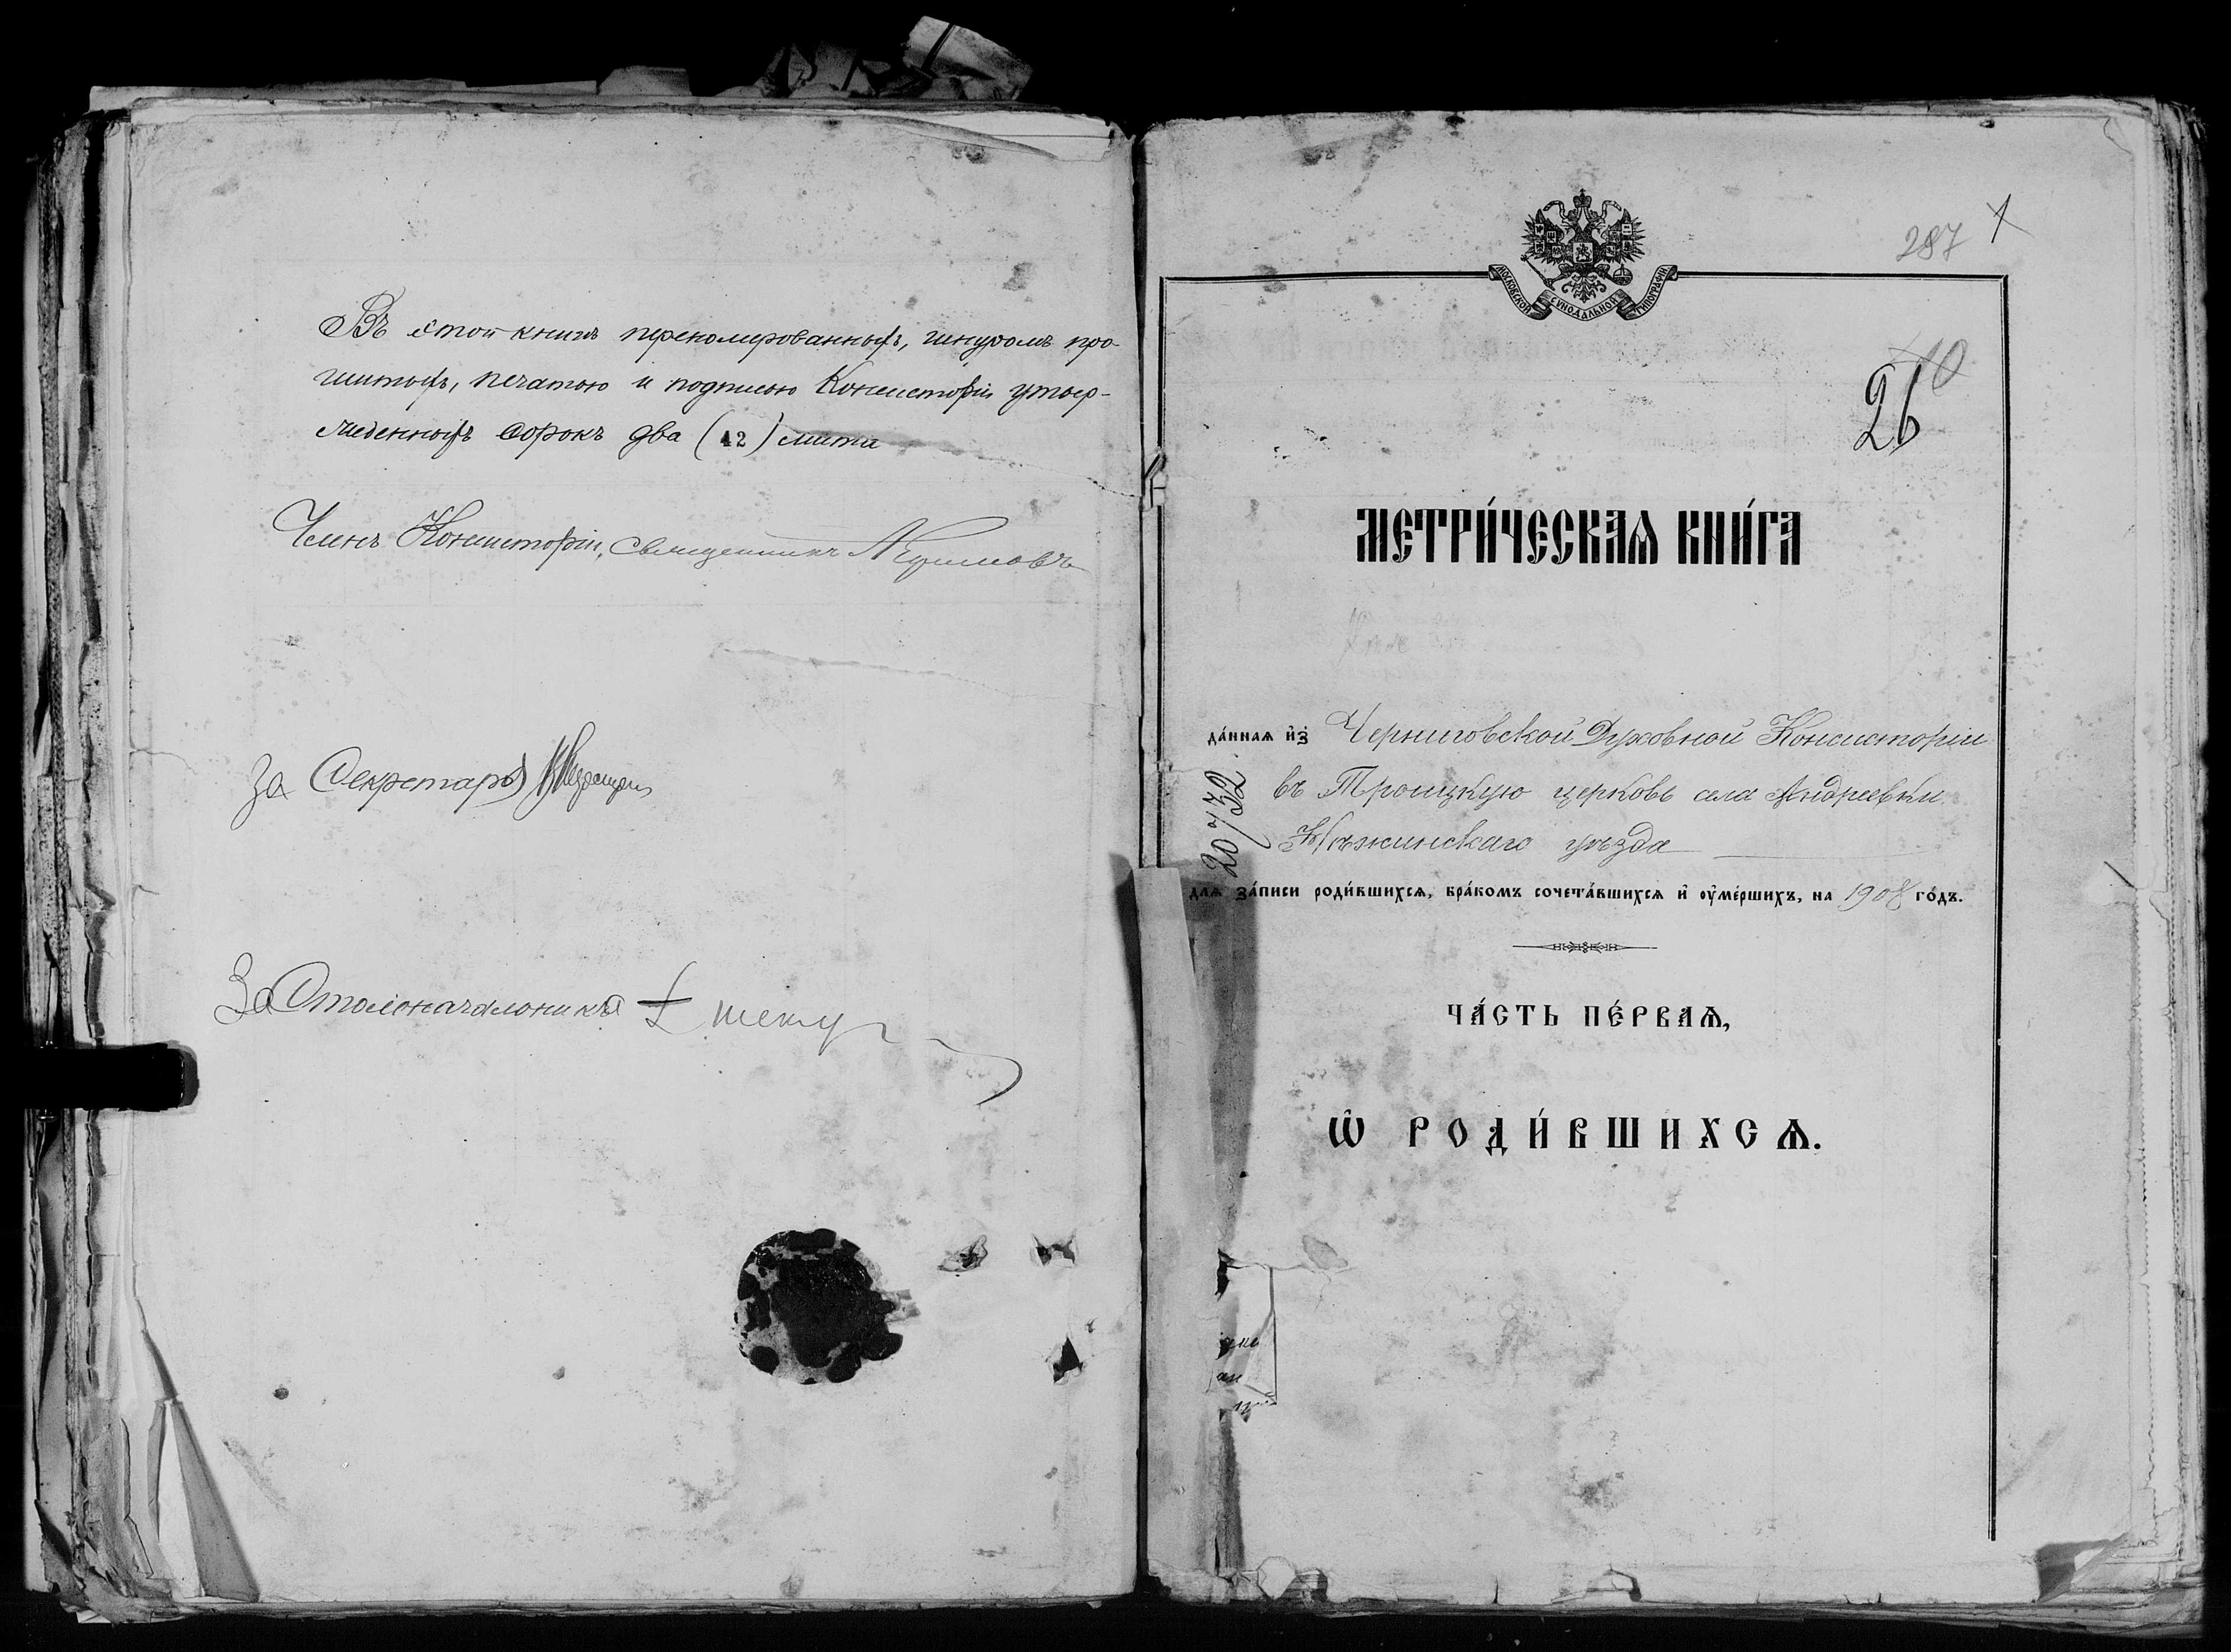 Въ этой книгѣ перенумерованныхъ, шнуромъ про-
шитыхъ, печатью и подписью Консисторіи утвер-
жденныхъ сорокъ два (42) листа
Членъ Консисторіи, священникъ
За Секретаря
За Столоначальника
287 1
МОСКОВСКОЙ СѴНОДАЛЬНОЙ ТИПОГРАФІИ
26
МЕТРИ́ЧЕСКАѦ КНИ́ГА
да́ннаѧ и҆з̾ Черниговской Духовной Консисторіи
въ Троицкую церковь села Андреевки
Нѣжинскаго уѣзда
20732
для за́писи роди́вшихсѧ, бра́комъ сочета́вшихсѧ и҆ оу҆ме́ршихъ, на 1908 го́дъ.
ЧА́СТЬ ПЕ́РВАѦ,
Ѡ҆ РОДИ́ВШИХСѦ.